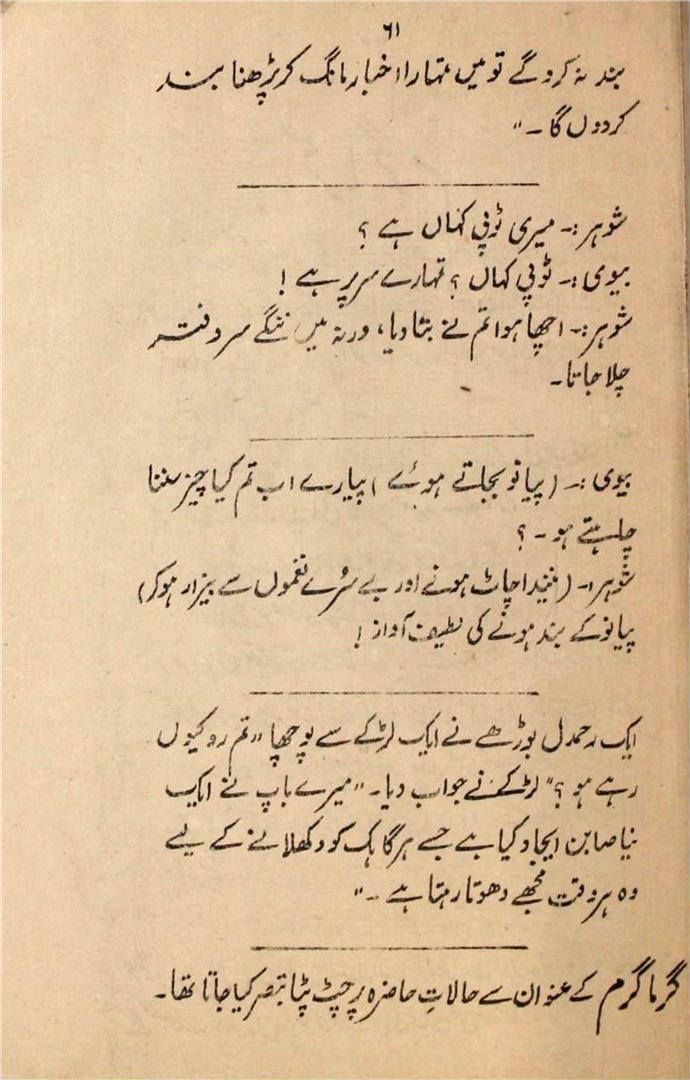 ۶۱
بند نہ کرو گے تو میں تمہارا اخبار مانگ کر پڑھنا بند
کردوں گا ۔"
شوہر :۔ میری ٹوپی کہاں ہے ؟
بیوی :۔ ٹوپی کہاں ؟ تمہارے سر پر ہے !
شوہر :۔ اچھا ہوا تم نے بتا دیا، ورنہ میں ننگے سر دفتر
چلا جاتا ۔
بیوی :۔ (پیانو بجاتے ہوئے) پیارے اب تم کیا چیز سننا
چاہتے ہو ۔ ؟
شوہر :۔ (نیند اچاٹ ہونے اور بے سُرے نغموں سے بیزار ہوکر)
پیانو کے بند ہونے کی لطیف آواز !
ایک رحمدل بوڑھے نے ایک لڑکے سے پوچھا "تم رو کیوں
رہے ہو ؟" لڑکے نے جواب دیا ۔ "میرے باپ نے ایک
نیا صابن ایجاد کیا ہے جسے ہر گاہک کو دکھلانے کے لیے
وہ ہر وقت مجھے دھوتا رہتا ہے ۔"
گرما گرم کے عنوان سے حالاتِ حاضرہ پر چٹ پٹا تبصر کیا جاتا تھا ۔